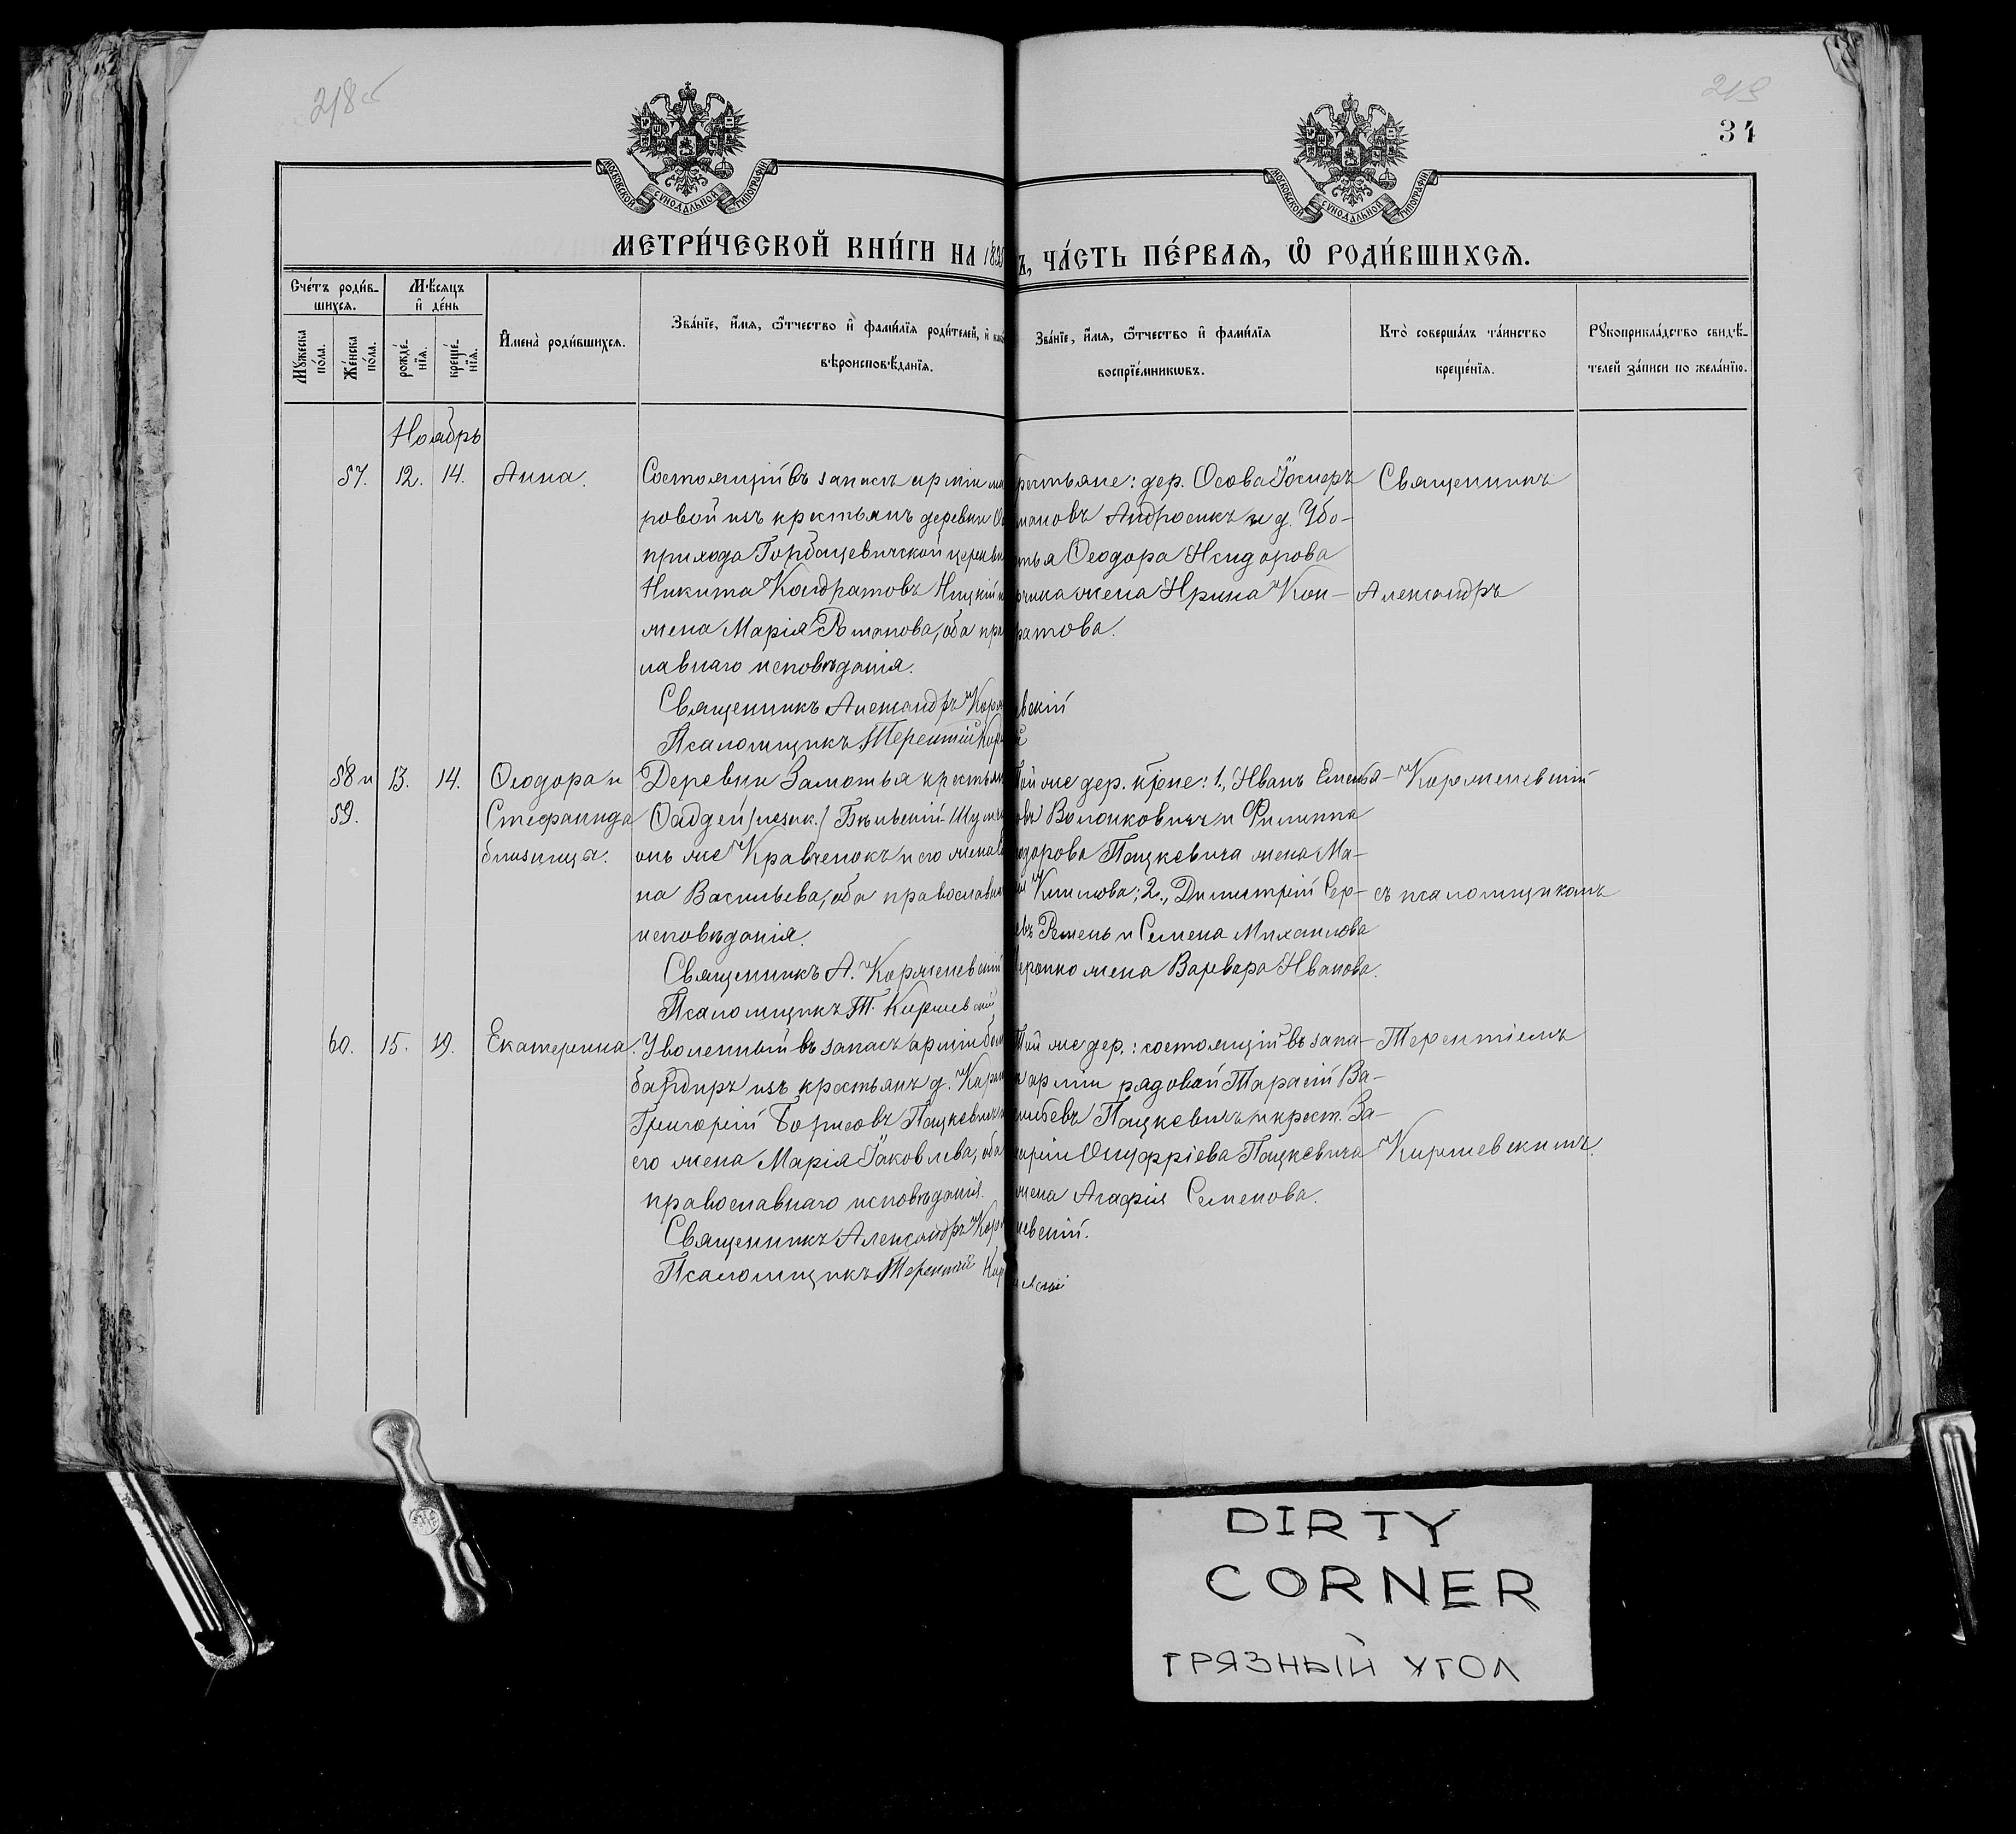 218 об
219
34
МОСКОВСКОЙ СѴНОДАЛЬНОЙ ТИПОГРАФІИ
МОСКОВСКОЙ СѴНОДАЛЬНОЙ ТИПОГРАФІИ
МЕТРИ́ЧЕСКОЙ КНИ́ГИ НА 189
Ъ, ЧА́СТЬ ПЕ́РВАѦ, Ѿ РОДИ́ВШИХСѦ.
Сче́тъ роди́в-
шихсѧ.
Мѣ́сѧцъ
и҆ де́нь
Мꙋ́жеска по́ла.
Же́нска по́ла.
рожде́-
нїѧ.
креще́-
нїѧ.
И҆мена̀ роди́вшихсѧ.
Зва́нїе, и҆́мѧ, ѻ҆́тчество и҆ фами́лїѧ роди́телей, и҆
вѣроисповѣ́данїѧ.
Зва́нїе, и҆́мѧ, ѻ҆́тчество и҆ фами́лїѧ
воспрїе́мникѡвъ.
Кто̀ соверша́лъ та́инство
креще́нїѧ.
Рꙋкоприкла́дство свидѣ́-
телей за́писи по жела́нїю.
Ноябрь
57. 12. 14. Анна.
Состоящій въ запасѣ арміи ма
ровой изъ крестьянъ деревни Ос
прихода Горбацевичской церкви
Никита Кондратовъ Ницкій и
жена Марія Романова, оба пра
лавнаго исповѣданія.
Священникъ Александръ Корж
Псаломщикъ Терентій Кир
рестьяне: дер. Осова Іосифъ
мановъ Андросикъ и д. Убо-
тья Ѳеодора Исидорова
жена Ирина Кон-
ратова.
евскій
Священникъ
Александръ
58 и 13. 14. Ѳеодора и
59. Стефанида
близнца.
Деревни Замотья крестьян
Ѳаддей (незак.) Бѣлявскій-Шуме
онъ же Кравченокъ и его жена
на Васильева, оба православна
исповѣданія.
Священникъ А. Корженевскій
Псаломщикъ Т. Киршевскій
Той же дер. кр-не: 1., Иванъ Емелья-
овъ Волонковичъ и Филиппа
одорова Пацкевича жена Ма-
2., Димитрій Сер-
евъ Ремень и Семена Михаилова
жена Варвара Иванова.
Корженевскій
съ псаломщикомъ
60. 15. 19. Екатерина.
Уволенный въ запасъ арміи бом
бардиръ изъ крестьянъ д.
Григорій Борисовъ Пацкевичъ и
его жена Марія Іаковлева, оба
православнаго исповѣданія.
Священникъ Александръ Кор
Псаломщикъ Терентій Кир
Той же дер.: состоящій въ запа-
арміи рядовой Тарасій Ва-
сильевъ Пацкевичъ и крест. За-
харіи Онуфріева Пацкевича
жена Агафія Семенова.
невскій.
евскій
Терентіемъ
Киршевскимъ.
DIRTY
CORNER
ГРЯЗНЫЙ УГОЛ